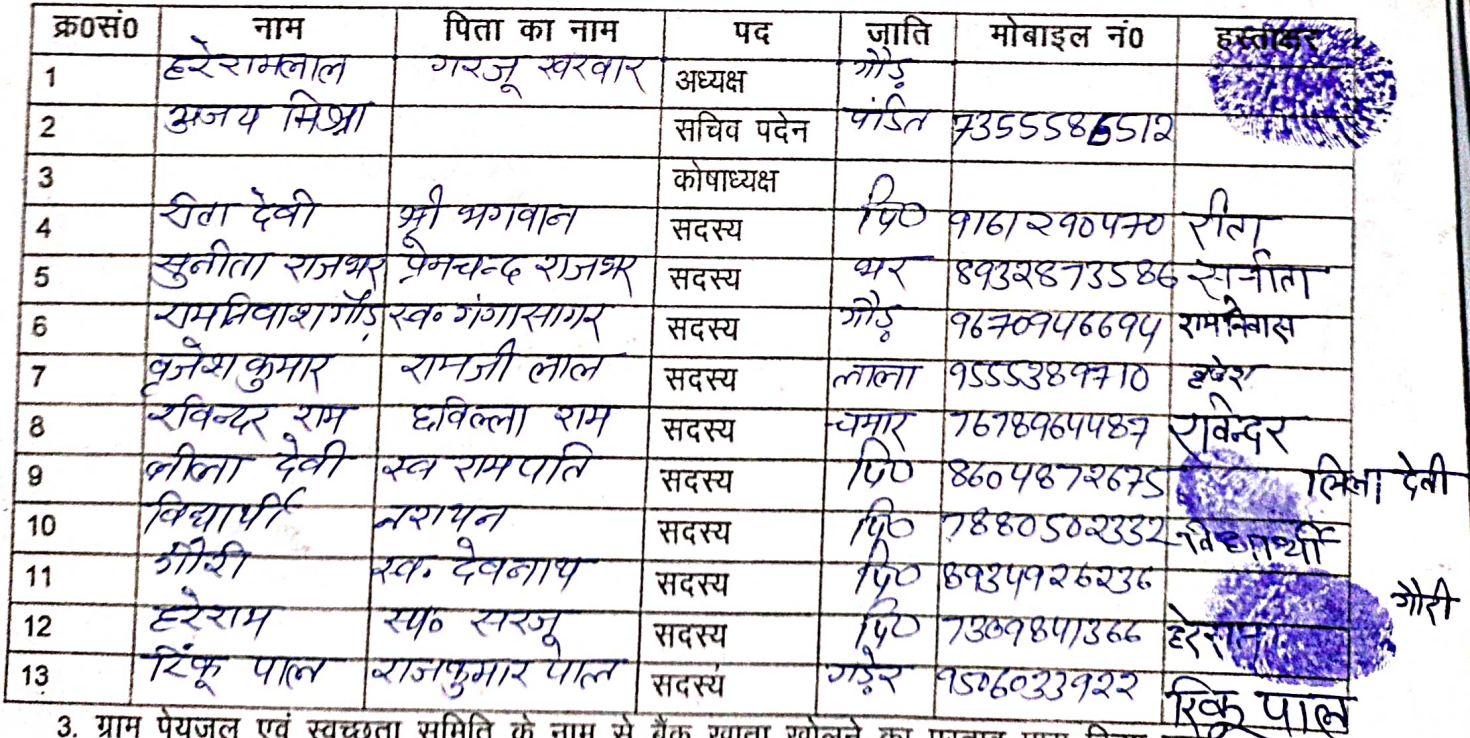 क्र0सं0 नाम पिता का नाम पद जाति मोबाइल नं0 हस्ताक्षर
1 हरेरामलाल गरजू खरवार अध्यक्ष गौड़
2 अजय मिश्रा सचिव पदेन पंडित 7355586512
3 कोषाध्यक्ष
4 रीता देवी श्री भगवान सदस्य पि0 9161290470 रीता
5 सुनीता राजभर प्रेमचन्द राजभर सदस्य भर 8932873586 सुनीता
6 रामनिवाश गौड़ स्व. गंगासागर सदस्य गौड़ 9670946694 रामनिवास
7 बृजेश कुमार रामजी लाल सदस्य लाला 9555389710
8 रविन्दर राम छविल्ला राम सदस्य चमार 7678964487 रविन्दर
9 लीला देवी स्व रामपति सदस्य पि0 8604872675 लिला देवी
10 विद्यार्थी नरायन सदस्य पि0 7880502332
11 गौरी स्व. देवनाथ सदस्य पि0 8934926236 गौरी
12 हरेराम स्व0 सरजू सदस्य पि0 7309841366 हरेराम
13 रिंकू पाल राजकुमार पाल सदस्य गड़ेर 9506033922 रिंकू पाल
3. ग्राम पेयजल एवं स्वच्छता समिति के नाम से बैंक खाता खोलने का प्रस्ताव पास किया